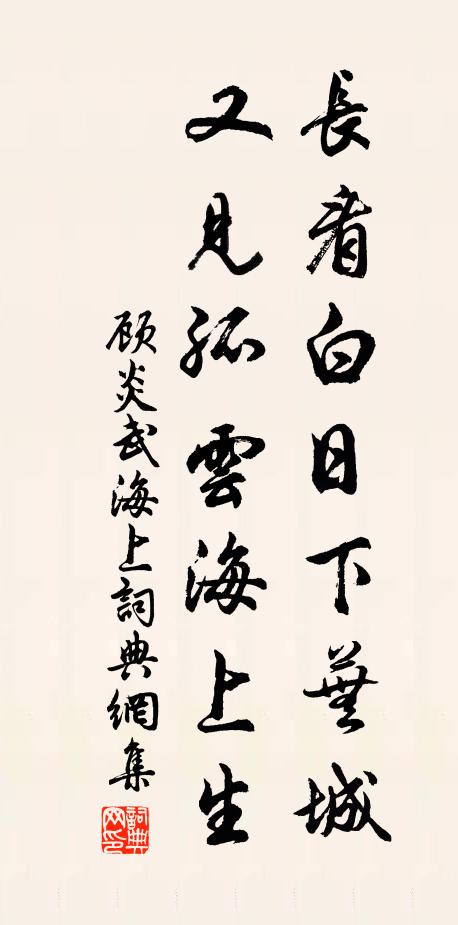 長看白日下蕪城
又見孤雲海上生
顾炎武海上詞典網集
詞典網印